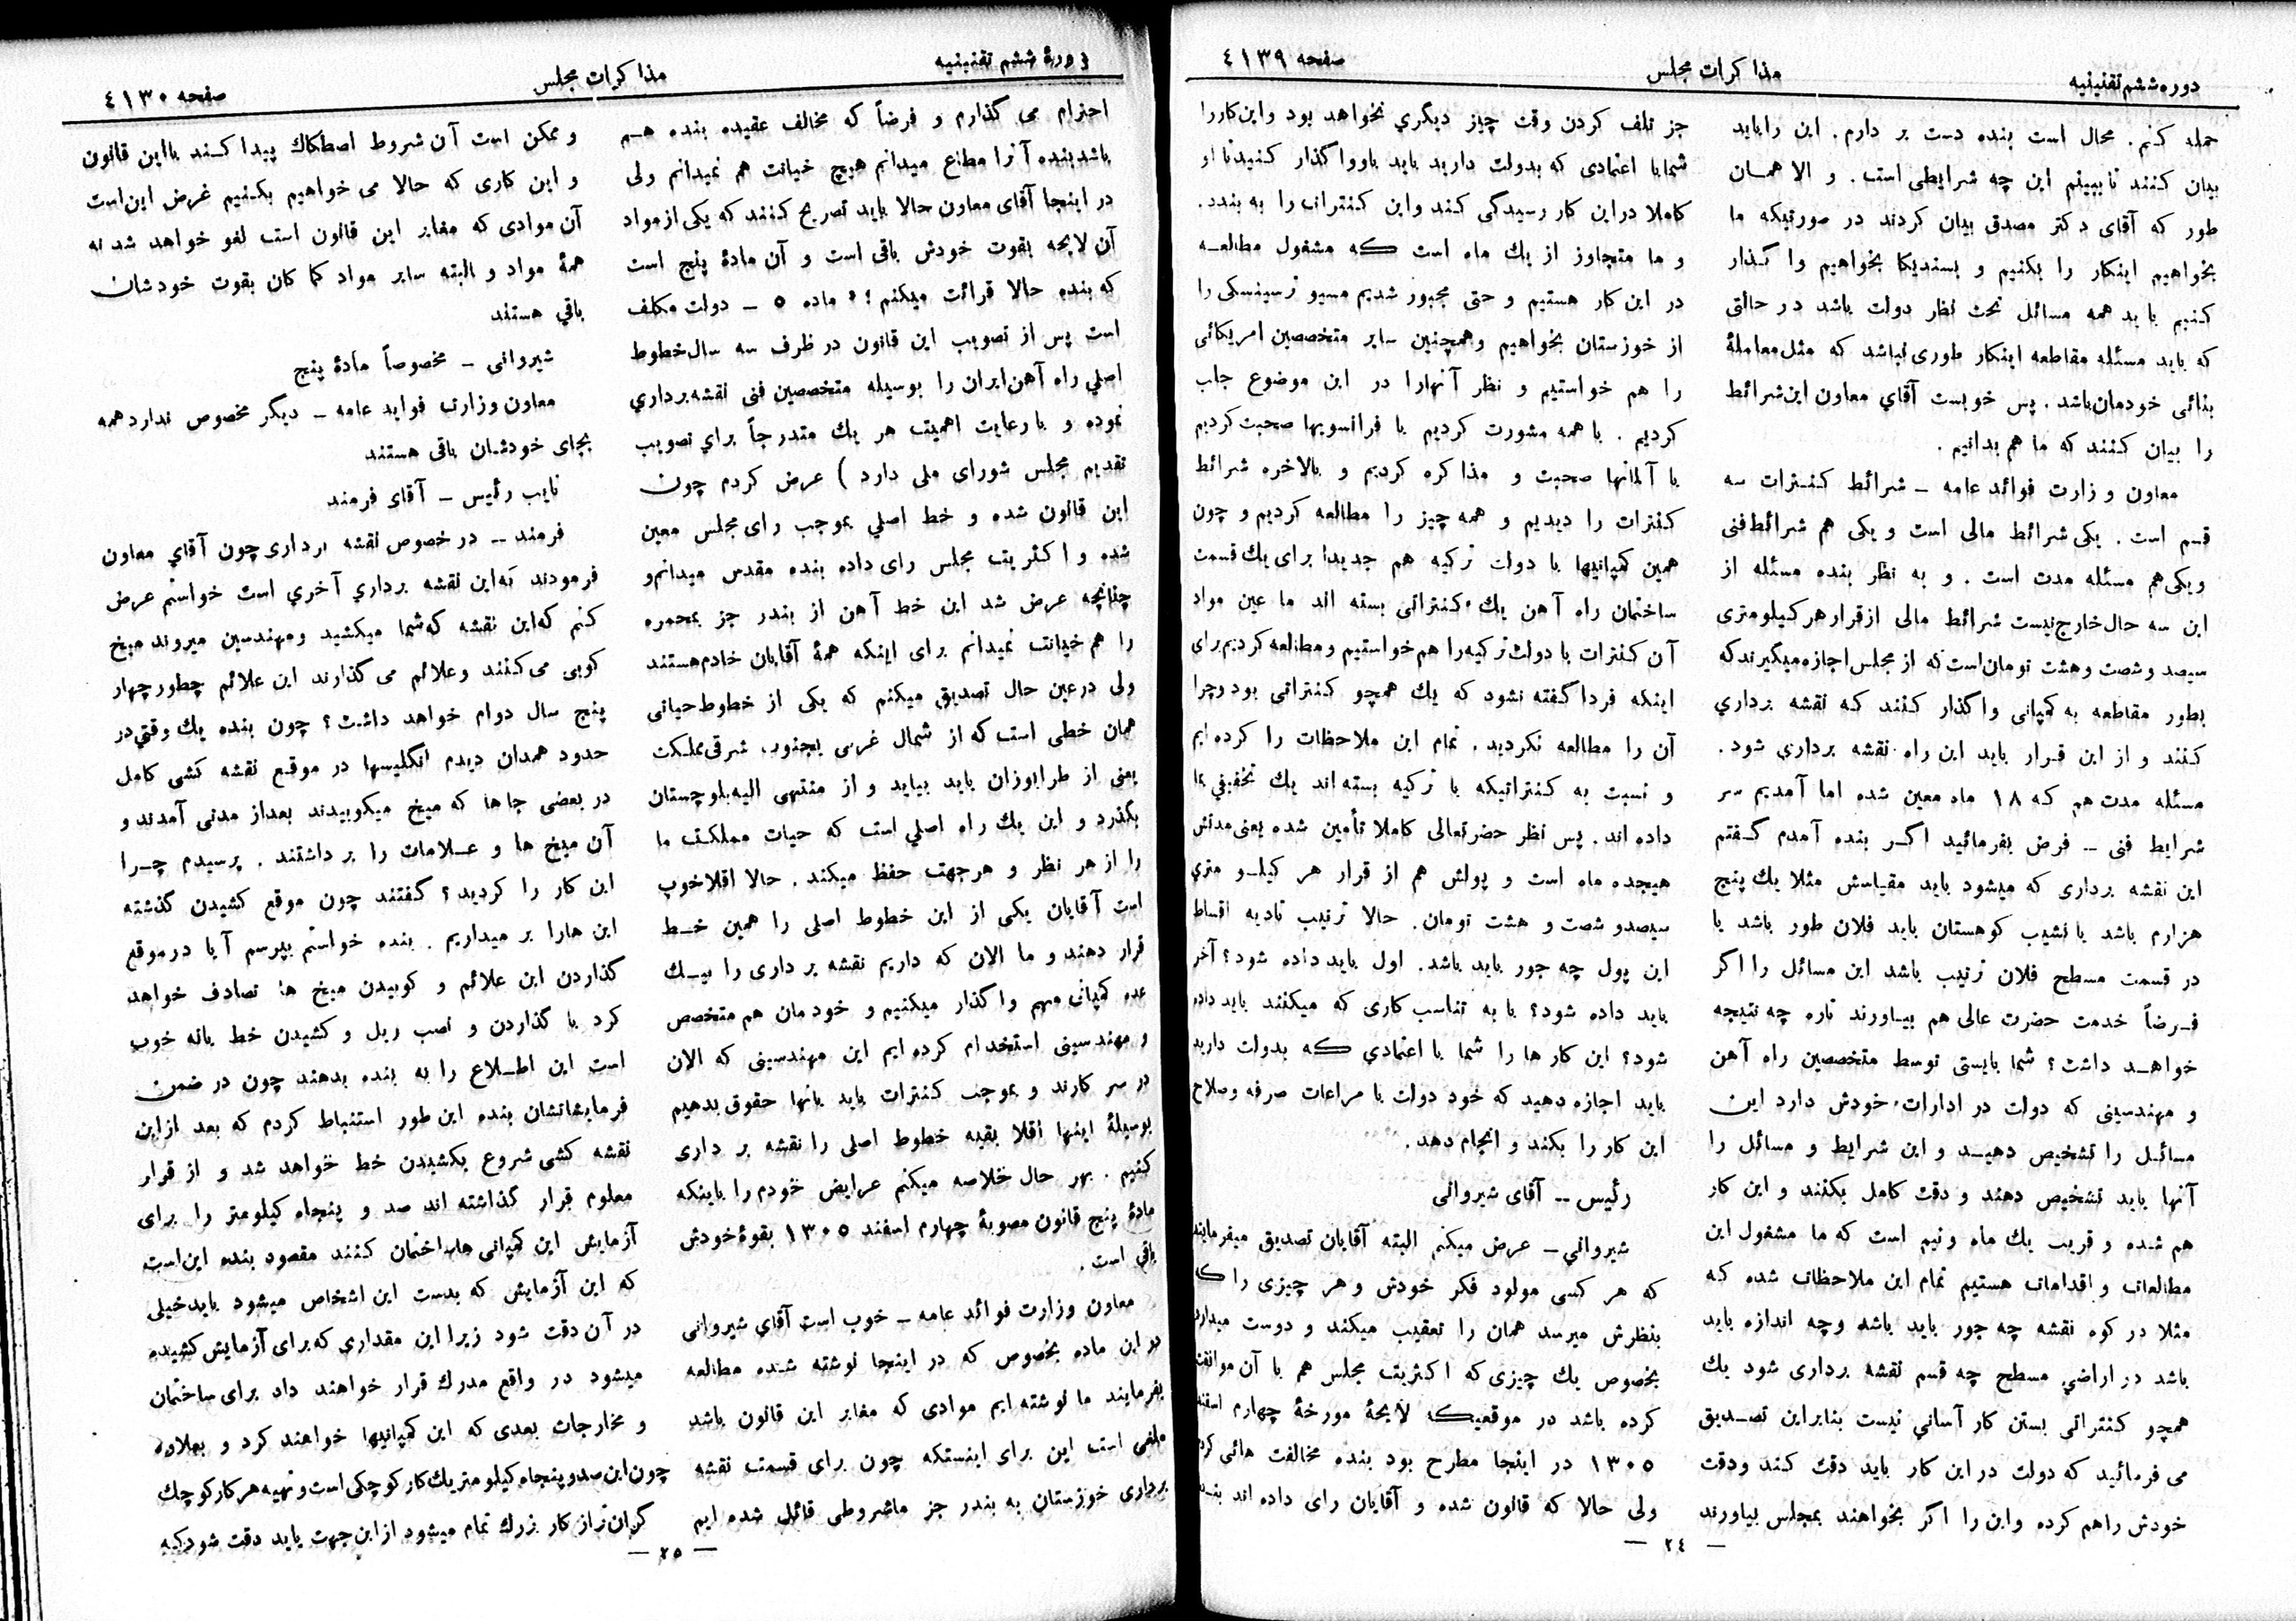 دوره ششم تقنینیه
مذاکرات مجلس
صفحه ٤١٣٩
حمله کنم. محال است بنده دست بر دارم. این را باید
بیان کنند تا ببینم این چه شرایطی است. و الا همان
طور که آقای دکتر مصدق بیان کردند در صورتیکه ما
بخواهیم اینکار را بکنیم و بسندیکا بخواهیم وا گذار
کنیم باید همه مسائل تحت نظر دولت باشد در حالتی
که باید مسئله مقاطعه اینکار طوری نباشد که مثل معاملهٔ
بنائی خودمان باشد. پس خوبست آقای معاون این شرائط
را بیان کنند که ما هم بدانیم.
معاون وزارت فوائد عامه ـ شرائط کنترات سه
قسم است. یکی شرائط مالی است و یکی هم شرائط فنی
ویکی هم مسئله مدت است. و به نظر بنده مسئله از
این سه حال خارج نیست شرائط مالی از قرار هر کیلومتری
سیصد و شصت و هشت تومان است که از مجلس اجازه میگیرند که
بطور مقاطعه به کمپانی واگذار کنند که نقشه برداری
کنند و از این قرار باید این راه نقشه برداری شود.
مسئله مدت هم که ۱۸ ماه معین شده اما آمدیم سر
شرایط فنی ـ فرض بفرمائید اگر بنده آمدم گفتم
این نقشه برداری که میشود باید مقیاسش مثلا یك پنج
هزارم باشد یا نشیب کوهستان باید فلان طور باشد یا
در قسمت مسطح فلان ترتیب باشد این مسائل را اگر
فرضاً خدمت حضرت عالی هم بیاورند تازه چه نتیجه
خواهد داشت؟ شما بایستی توسط متخصصین راه آهن
و مهندسینی که دولت در ادارات خودش دارد این
مسائل را تشخیص دهید و این شرایط و مسائل را
آنها باید تشخیص دهند و دقت کامل بکنند و این کار
هم شده و قریب یك ماه و نیم است که ما مشغول این
مطالعات و اقدامات هستیم تمام این ملاحظات شده که
مثلا در کوه نقشه چه جور باید باشد وچه اندازه باید
باشد در اراضی مسطح چه قسم نقشه برداری شود یك
همچو کنتراتی بستن کار آسانی نیست بنابراین تصدیق
می فرمائید که دولت در این کار باید دقت کند ودقت
خودش را هم کرده واین را اگر بخواهند بمجلس بیاورند
جز تلف کردن وقت چیز دیگری نخواهد بود واین کاررا
شما با اعتمادی که بدولت دارید باید باو واگذار کنید تا او
کاملا در این کار رسیدگی کند واین کنترات را به بندد.
و ما متجاوز از یك ماه است که مشغول مطالعه
در این کار هستیم و حتی مجبور شدیم مسیو ترسینسکی را
از خوزستان بخواهیم وهمچنین سایر متخصصین امریکائی
را هم خواستیم و نظر آنهارا در این موضوع جلب
کردیم. با همه مشورت کردیم با فرانسویها صحبت کردیم
با آلمانها صحبت و مذاکره کردیم و بالاخره شرائط
کنترات را دیدیم و همه چیز را مطالعه کردیم و چون
همین کمپانیها با دولت ترکیه هم جدیداً برای یك قسمت
ساختمان راه آهن یك کنتراتی بسته اند ما عین مواد
آن کنترات با دولت ترکیه را هم خواستیم ومطالعه کردیم برای
اینکه فردا گفته نشود که یك همچو کنتراتی بود وچرا
آن را مطالعه نکردید. تمام این ملاحظات را کرده ایم
و نسبت به کنتراتیکه با ترکیه بسته اند یك تخفیفی بما
داده اند. پس نظر حضرتعالی کاملا تأمین شده یعنی مدتش
هیجده ماه است و پولش هم از قرار هر کیلو متری
سیصدو شصت و هشت تومان. حالا ترتیب تادیه اقساط
این پول چه جور باید باشد. اول باید داده شود؟ آخر
باید داده شود؟ یا به تناسب کاری که میکنند باید داده
شود؟ این کار ها را شما با اعتمادی که بدولت دارید
باید اجازه دهید که خود دولت با مراعات صرفه وصلاح
این کار را بکند و انجام دهد.
رئیس ـ آقای شیروانی
شیروانی ـ عرض میکنم البته آقایان تصدیق میفرمایند
که هر کسی مولود فکر خودش و هر چیزی را که
بنظرش میرسد همان را تعقیب میکند و دوست میدارد
بخصوص یك چیزی که اکثریت مجلس هم با آن موافقت
کرده باشد در موقعیکه لایحهٔ مورخهٔ چهارم اسفند
۱۳۰٥ در اینجا مطرح بود بنده مخالفت هائی کردم
ولی حالا که قانون شده و آقایان رای داده اند بنده
— ٢٤ —
دورهٔ ششم تقنینیه
مذاکرات مجلس
صفحه ٤١٣٠
احترام می گذارم و فرضاً که مخالف عقیده بنده هم
باشد بنده آنرا مطاع میدانم هیچ خیانت هم نمیدانم ولی
در اینجا آقای معاون حالا باید تصریح کنند که یکی از مواد
آن لایحه بقوت خودش باقی است و آن مادهٔ پنج است
که بنده حالا قرائت میکنم: ماده ٥ ـ دولت مکلف
است پس از تصویب این قانون در ظرف سه سال خطوط
اصلی راه آهن ایران را بوسیله متخصصین فنی نقشه برداری
نموده و با رعایت اهمیت هر یك متدرجاً برای تصویب
تقدیم مجلس شورای ملی دارد ) عرض کردم چون
این قانون شده و خط اصلی بموجب رای مجلس معین
شده و اکثریت مجلس رای داده بنده مقدس میدانم و
چنانچه عرض شد این خط آهن از بندر جز بمحمره
را هم خیانت نمیدانم برای اینکه همهٔ آقایان خادم هستند
ولی درعین حال تصدیق میکنم که یکی از خطوط حیاتی
همان خطی است که از شمال غربی بجنوب شرقی مملکت
یعنی از طرابوزان باید بیاید و از منتهی الیه بلوچستان
بگذرد و این یك راه اصلی است که حیات مملکت ما
را از هر نظر و هرجهت حفظ میکند. حالا اقلا خوب
است آقایان یکی از این خطوط اصلی را همین خط
قرار دهند و ما الان که داریم نقشه برداری را بیك
عده کمپانی مهم واگذار میکنیم و خودمان هم متخصص
و مهندسینی استخدام کرده ایم این مهندسینی که الان
در سر کارند و بموجب کنترات باید بانها حقوق بدهیم
بوسیلهٔ اینها اقلا بقیه خطوط اصلی را نقشه برداری
کنیم. بهر حال خلاصه میکنم عرایض خودم را باینکه
مادهٔ پنج قانون مصوبهٔ چهارم اسفند ۱۳۰٥ بقوهٔ خودش
باقی است.
معاون وزارت فوائد عامه ـ خوب است آقای شیروانی
در این ماده بخصوص که در اینجا نوشته شده مطالعه
بفرمایند ما نوشته ایم موادی که مغایر این قانون باشد
ملغی است این برای اینستکه چون برای قسمت نقشه
برداری خوزستان به بندر جز ماشروطی قائل شده ایم
و ممکن است آن شروط اصطکاك پیدا کند بااین قانون
و این کاری که حالا می خواهیم بکنیم غرض این است
آن موادی که مغایر این قانون است لغو خواهد شد نه
همهٔ مواد و البته سایر مواد کما کان بقوت خودشان
باقی هستند
شیروانی ـ مخصوصاً مادهٔ پنج
معاون وزارت فواید عامه ـ دیگر مخصوص ندارد همه
بجای خودشان باقی هستند
نایب رئیس ـ آقای فرمند
فرمند ـ در خصوص نقشه برداری چون آقای معاون
فرمودند که این نقشه برداری آخری است خواستم عرض
کنم که این نقشه که شما میکشید ومهندسین میروند میخ
کوبی می کنند و علائم می گذارند این علائم چطور چهار
پنج سال دوام خواهد داشت؟ چون بنده یك وقتی در
حدود همدان دیدم انگلیسها در موقع نقشه کشی کامل
در بعضی جاها که میخ میکوبیدند بعداز مدتی آمدند و
آن میخ ها و علامات را بر داشتند. پرسیدم چرا
این کار را کردید؟ گفتند چون موقع کشیدن گذشته
این هارا بر میداریم. بنده خواستم بپرسم آیا در موقع
گذاردن این علائم و کوبیدن میخ ها تصادف خواهد
کرد با گذاردن و نصب ریل و کشیدن خط یانه خوب
است این اطلاع را به بنده بدهند چون در ضمن
فرمایشاتشان بنده این طور استنباط کردم که بعد ازاین
نقشه کشی شروع بکشیدن خط خواهد شد و از قرار
معلوم قرار گذاشته اند صد و پنجاه کیلومتر را برای
آزمایش این کمپانی ها ساختمان کنند مقصود بنده این است
که این آزمایش که بدست این اشخاص میشود باید خیلی
در آن دقت شود زیرا این مقداری که برای آزمایش کشیده
میشود در واقع مدرك قرار خواهند داد برای ساختمان
و مخارجات بعدی که این کمپانیها خواهند کرد و بعلاوه
چون این صدو پنجاه کیلومتر یك کار کوچکی است و تهیه هر کار کوچك
گران تر از کار بزرك تمام میشود از این جهت باید دقت شود که
— ٢٥ —